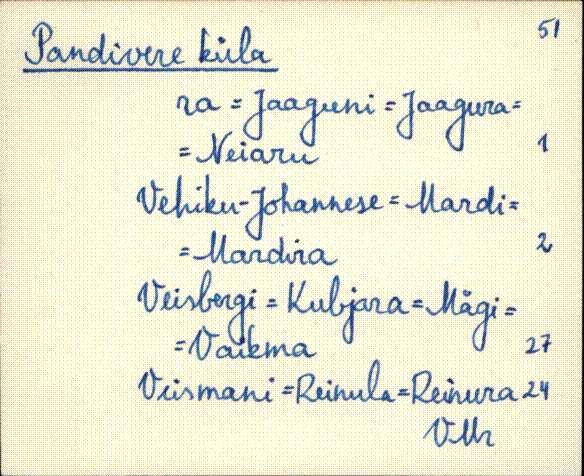 51
Pandivere küla
ra = Jaaguni = Jaagura =
= Neiaru 1
Vehiku-Johannese = Mardi =
= Mardira 2
Veisbergi = Kubjara = Mägi =
= Vaikma 27
Veismani = Reinula = Reinura 24
VMr